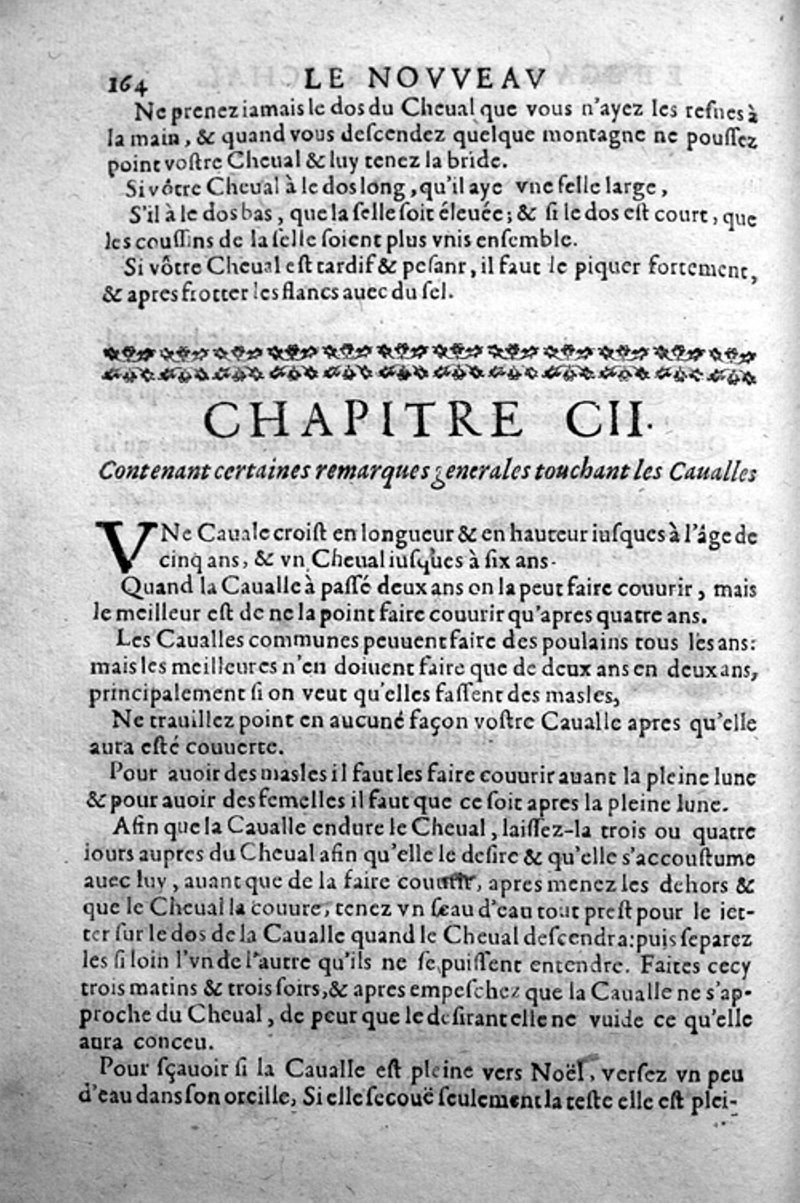 164 LE NOVVEAV
Ne prenez iamais le dos du Cheual que vous n'ayez les resnes à
la main, & quand vous descendez quelque montagne ne poussez
point vostre Cheual & luy tenez la bride.
Si vôtre Cheual à le dos long, qu'il aye vne selle large,
S'il à le dos bas, que la selle soit éleuée; & si le dos est court, que
les coussins de la selle soient plus vnis ensemble.
Si vôtre Cheual est tardif & pesanr, il faut le piquer fortement,
& apres frotter les flancs auec du sel.
CHAPITRE CII.
Contenant certaines remarques generales touchant les Caualles
VNe Cauale croist en longueur & en hauteur iusques à l'âge de
cinq ans, & vn Cheual iusques à six ans.
Quand la Caualle à passé deux ans on la peut faire couurir, mais
le meilleur est de ne la point faire couurir qu'apres quatre ans.
Les Caualles communes peuuent faire des poulains tous les ans:
mais les meilleures n'en doiuent faire que de deux ans en deux ans,
principalement si on veut qu'elles fassent des masles,
Ne trauillez point en aucuné façon vostre Caualle apres qu'elle
aura esté couuerte.
Pour auoir des masles il faut les faire couurir auant la pleine lune
& pour auoir des femelles il faut que ce soit apres la pleine lune.
Afin que la Caualle endure le Cheual, laissez-la trois ou quatre
iours aupres du Cheual afin qu'elle le desire & qu'elle s'accoustume
auec luy, auant que de la faire couurir, apres menez les dehors &
que le Cheual la couure, tenez vn seau d'eau tout prest pour le iet-
ter sur le dos de la Caualle quand le Cheual descendra: puis separez
les si loin l'vn de l'autre qu'ils ne se puissent entendre. Faites cecy
trois matins & trois soirs, & apres empeschez que la Caualle ne s'ap-
proche du Cheual, de peur que le desirant elle ne vuide ce qu'elle
aura conceu.
Pour sçauoir si la Caualle est pleine vers Noël, versez vn peu
d'eau dans son oreille, Si elle secouë seulement la teste elle est plei-